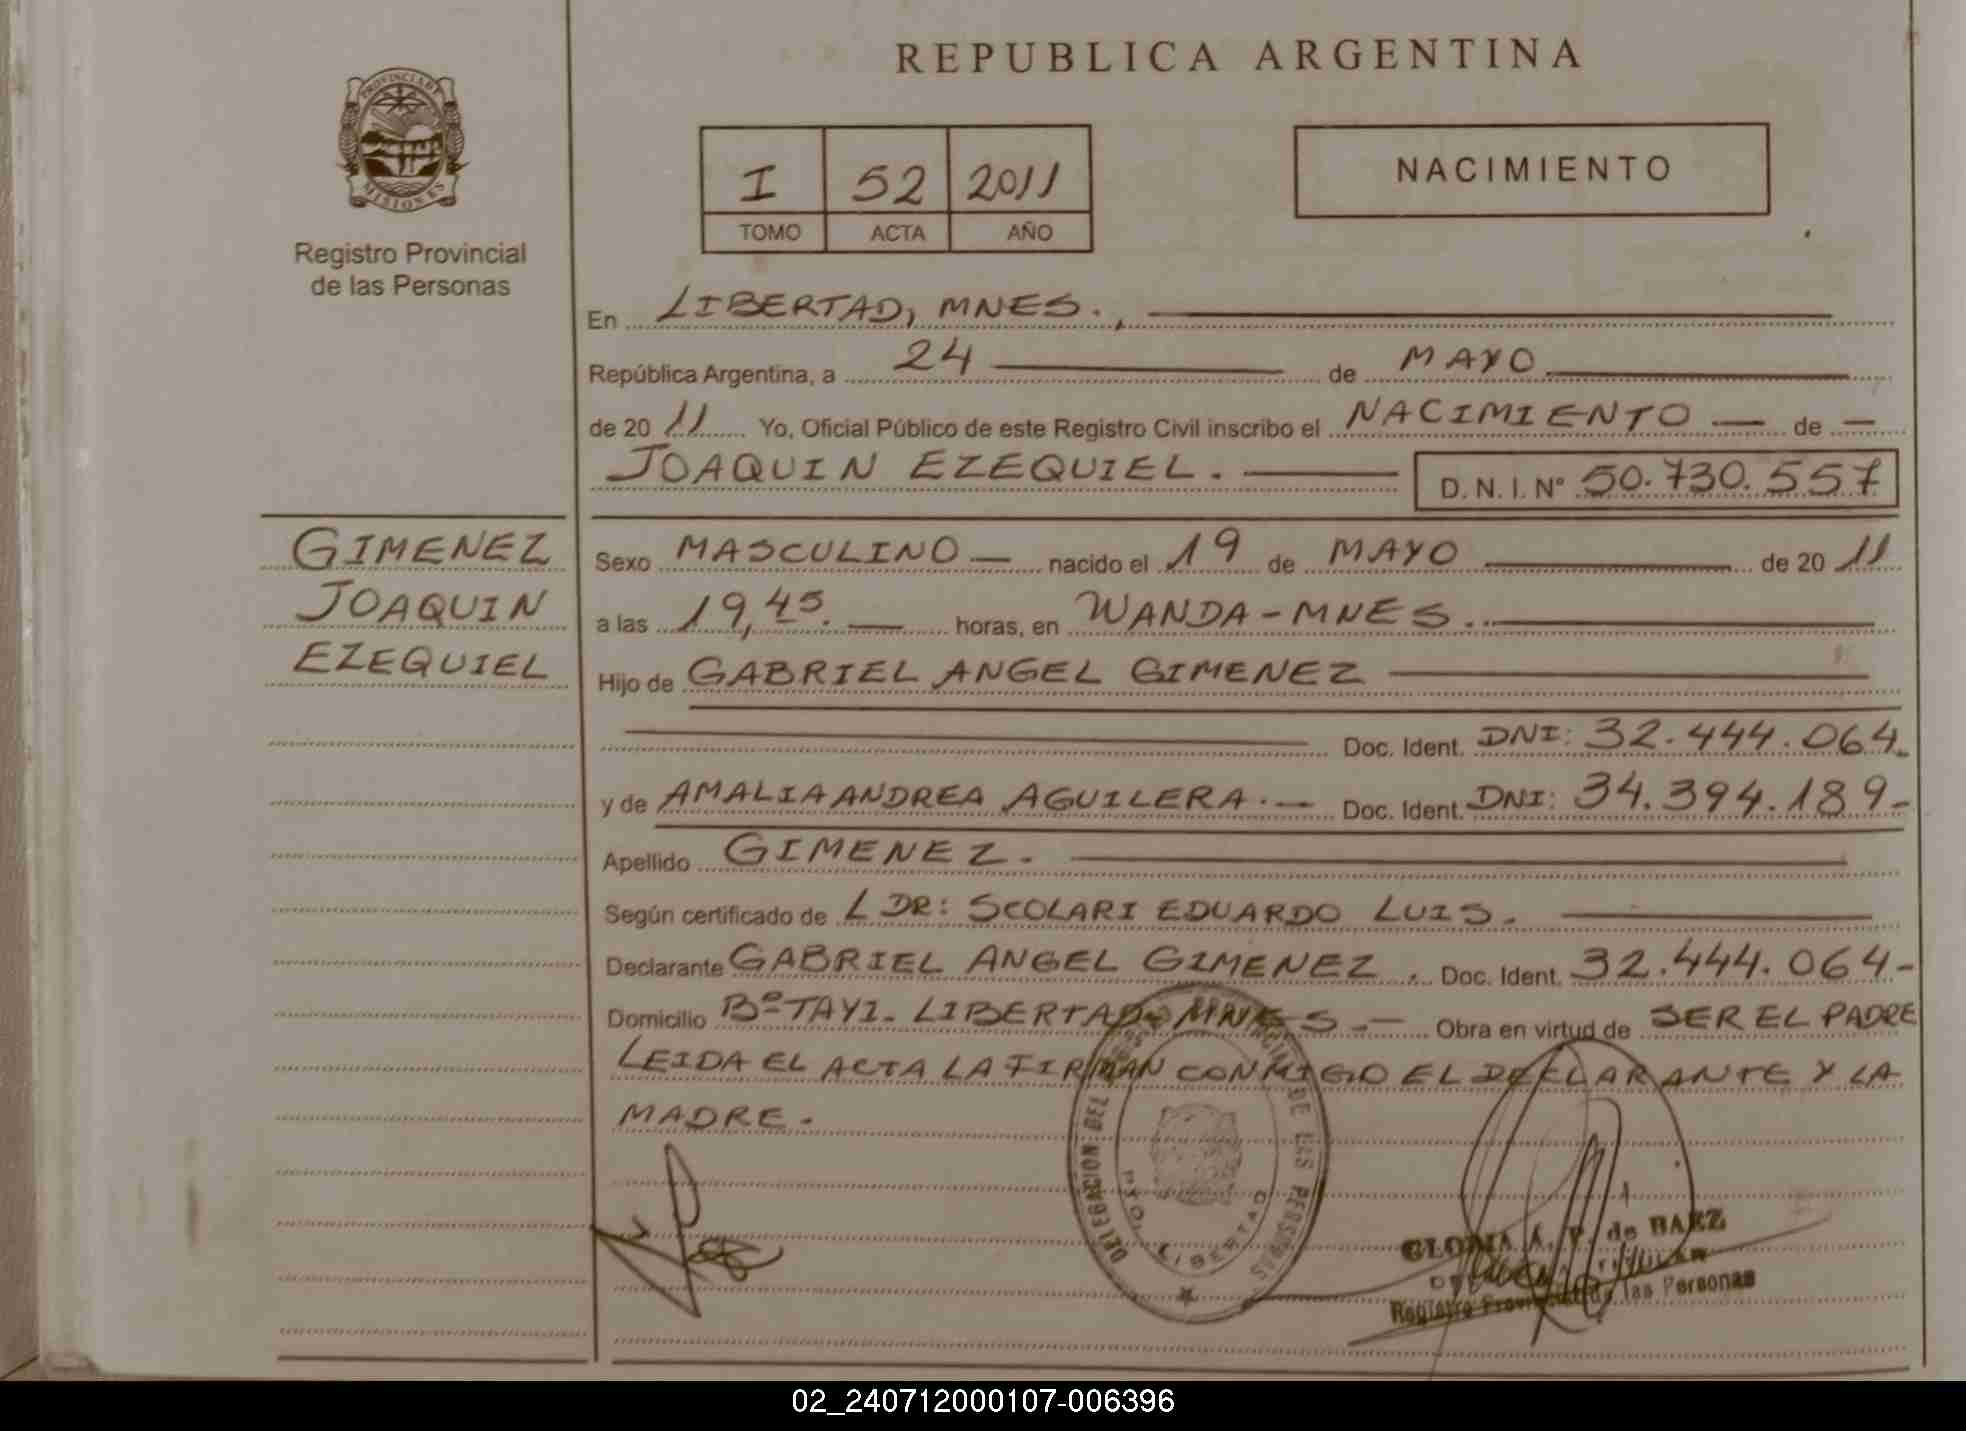 REPUBLICA ARGENTINA
PROVINCIA DE
MISIONES
Registro Provincial
de las Personas
I 52 2011
TOMO ACTA AÑO
NACIMIENTO
En LIBERTAD, MNES.,
República Argentina, a 24 de MAYO
de 2011 Yo, Oficial Público de este Registro Civil inscribo el NACIMIENTO de
JOAQUIN EZEQUIEL. D. N. I. Nº 50.730.557
GIMENEZ
JOAQUIN
EZEQUIEL
Sexo MASCULINO nacido el 19 de MAYO de 2011
a las 19,45. horas, en WANDA-MNES.
Hijo de GABRIEL ANGEL GIMENEZ
Doc. Ident. DNI: 32.444.064.
y de AMALIA ANDREA AGUILERA.- Doc. Ident. DNI: 34.394.189-
Apellido GIMENEZ.
Según certificado de L DR: SCOLARI EDUARDO LUIS.
Declarante GABRIEL ANGEL GIMENEZ. Doc. Ident. 32.444.064-
Domicilio Bº TAYI- LIBERTAD- MNES.- Obra en virtud de SER EL PADRE
LEIDA EL ACTA LA FIRMAN CONMIGO EL DECLARANTE Y LA
MADRE.
DELEGACION DEL DE LAS PERSONAS
LIBERTAD
GLORIA A. P. de BAEZ
TITULAR
Registro Provincial de las Personas
02_240712000107-006396